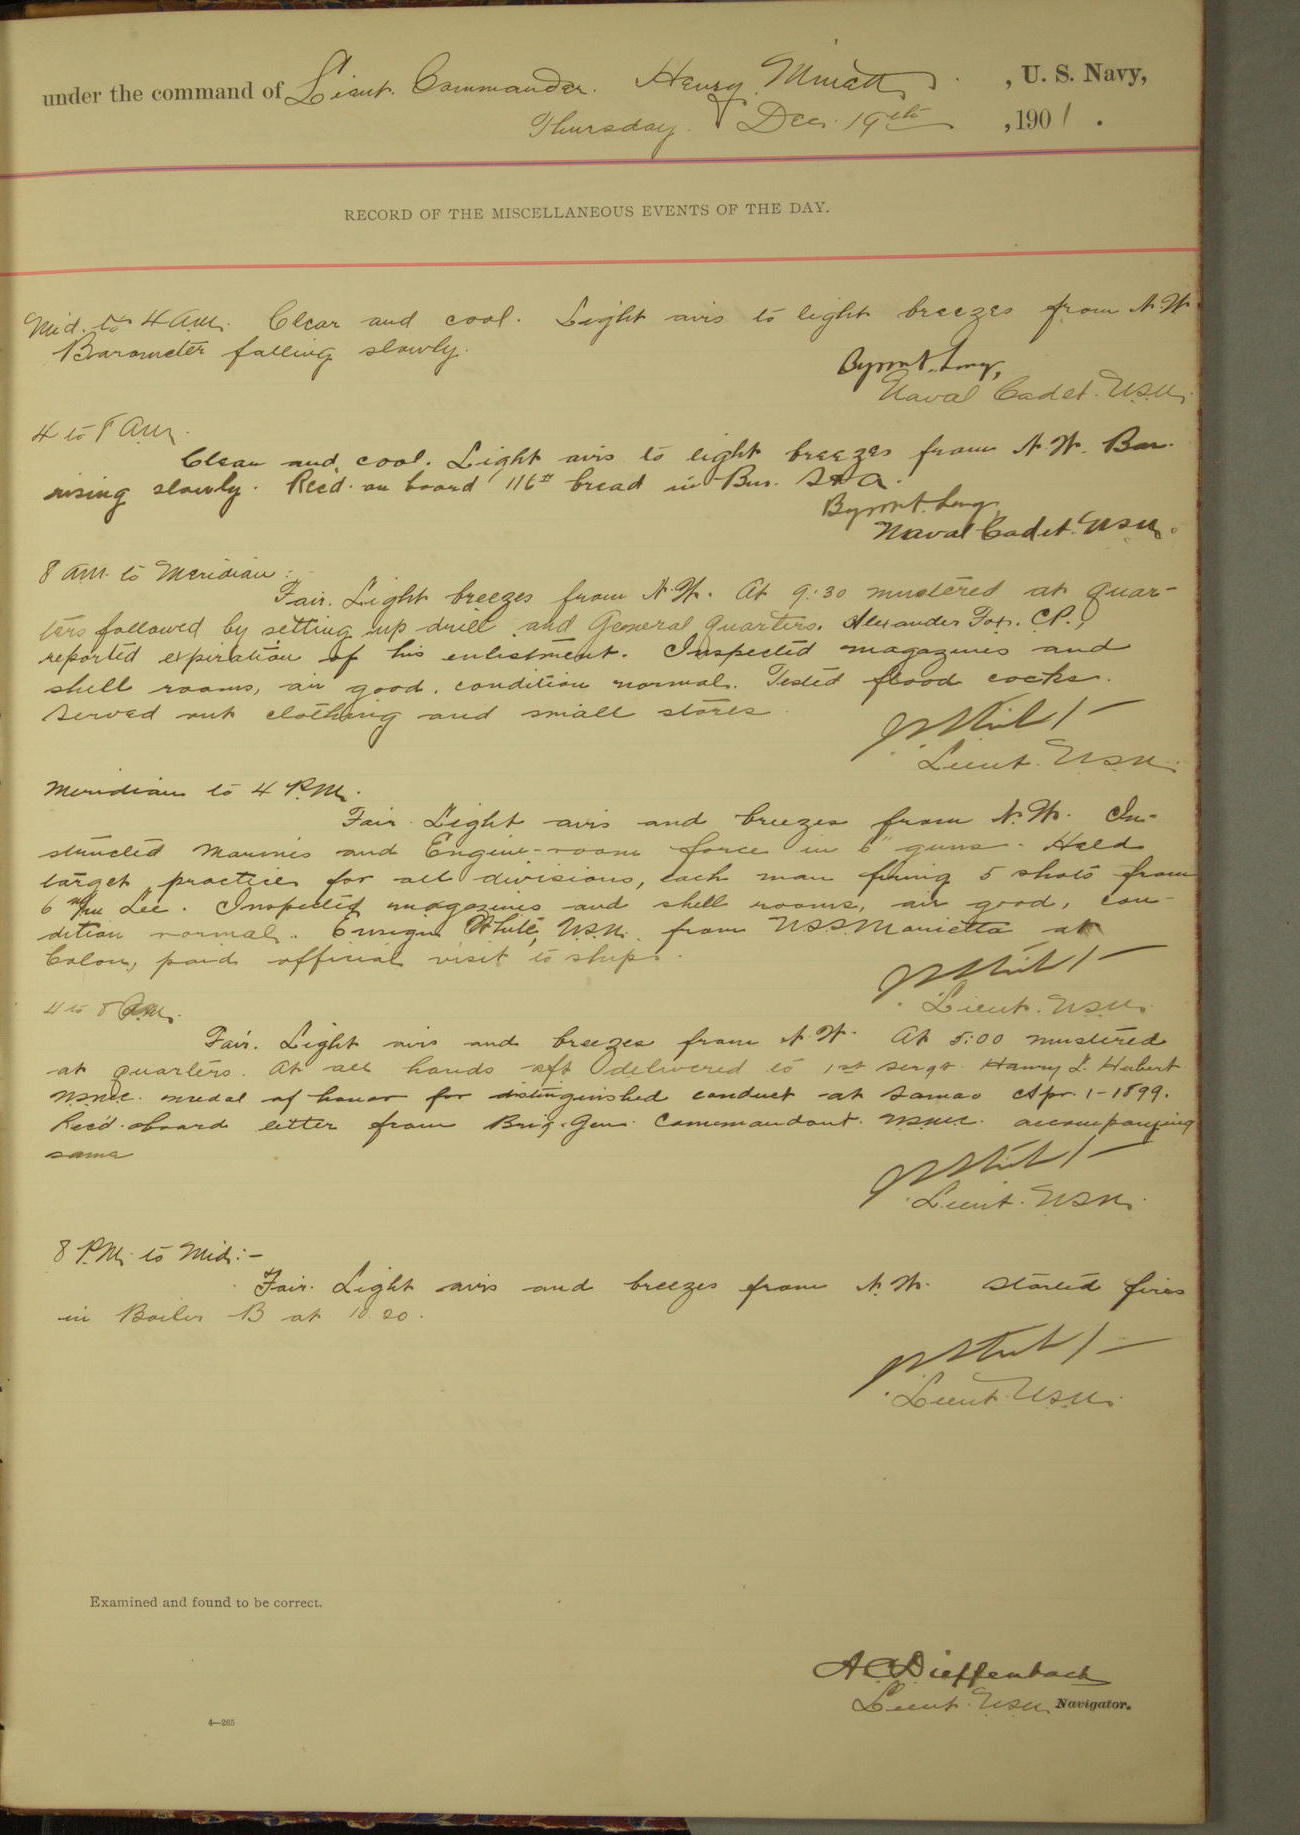 under the command of Lieut. Commander. Henry Minett, U. S. Navy,
Thursday. Dec. 19th, 1901.
RECORD OF THE MISCELLANEOUS EVENTS OF THE DAY.
Mid. to 4 a.m. Clear and cool. Light airs to light breezes from N.W.
Barometer falling slowly.
Byron A. Long,
Naval Cadet. U.S.N.
4 to 8 A.M.
Clear and cool. Light airs to light breezes from N.W. Bar.
rising slowly. Rec'd. on board 116# bread in Bur. S & A.
Byron A. Long,
Naval Cadet. U.S.N.
8 A.M. to Meridian:
Fair. Light breezes from N.W. At 9:30 mustered at quar-
ters followed by setting up drill and General Quarters. Alexander Fox. C.P.,
reported expiration of his enlistment. Inspected magazines and
shell rooms, air good, condition normal. Tested flood cocks.
Served out clothing and small stores.
Lieut. U.S.N.
Meridian to 4 P.M.
Fair. Light airs and breezes from N.W. In-
structed Marines and Engine-room force in 6" guns. Held
target practice for all divisions, each man firing 5 shots from
6 m/m Lee. Inspected magazines and shell rooms, air good, con-
dition normal. Ensign White, U.S.N. from U.S.S. Marietta at
Colon, paid official visit to ship.
Lieut. U.S.N.
4 to 8 P.M.
Fair. Light airs and breezes from N.W. At 5:00 mustered
at quarters. At all hands aft delivered to 1st Sergt. Harry L. Hulbert
U.S.M.C. medal of honor for distinguished conduct at Samoa Apr. 1-1899.
Rec'd. aboard letter from Brig. Gen. Commandant. U.S.M.C. accompanying
same
Lieut. U.S.N.
8 P.M. to Mid:-
Fair. Light airs and breezes from N.W. Started fires
in Boiler B at 10.20.
Lieut. U.S.N.
Examined and found to be correct.
A C Dieffenbach
Lieut. U.S.N. Navigator.
4—265